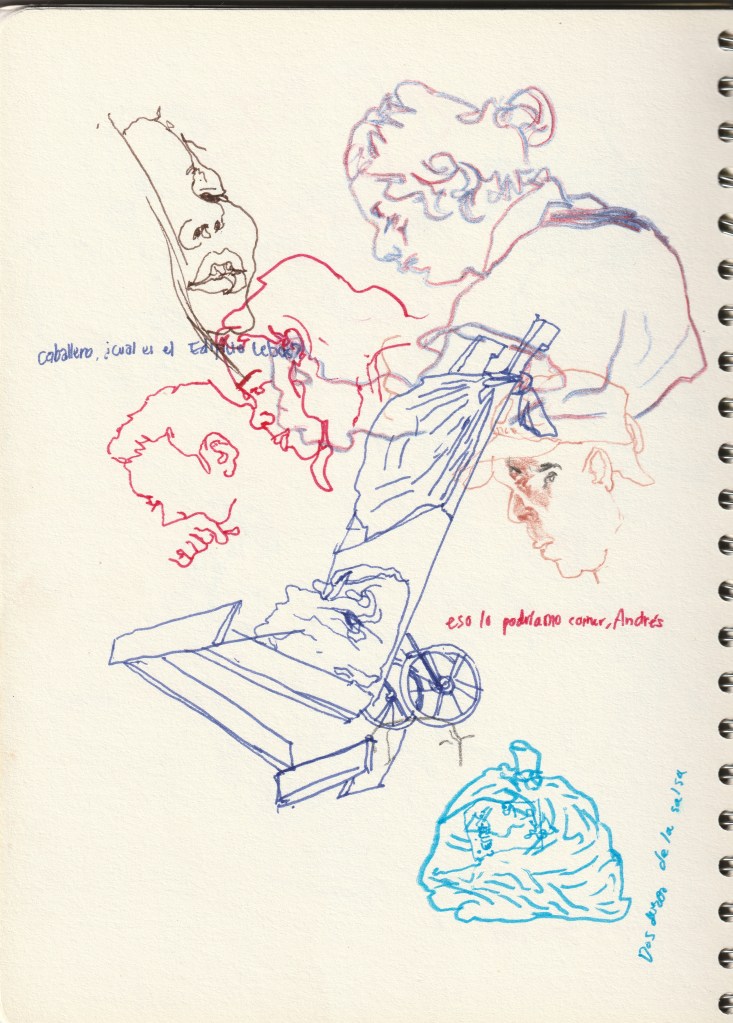 Caballero, ¿cual es el Edificio
eso lo podríamo comer, Andrés
Dos de la salsa